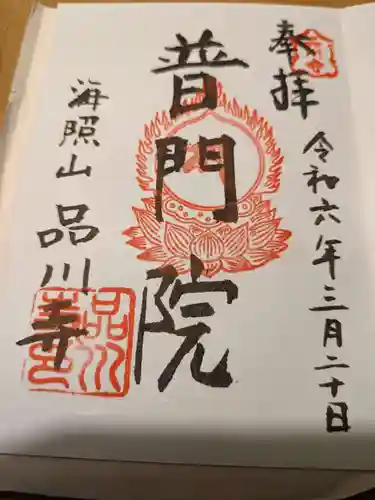 奉拝
令和六年三月二十日
普門院
海照山品川寺